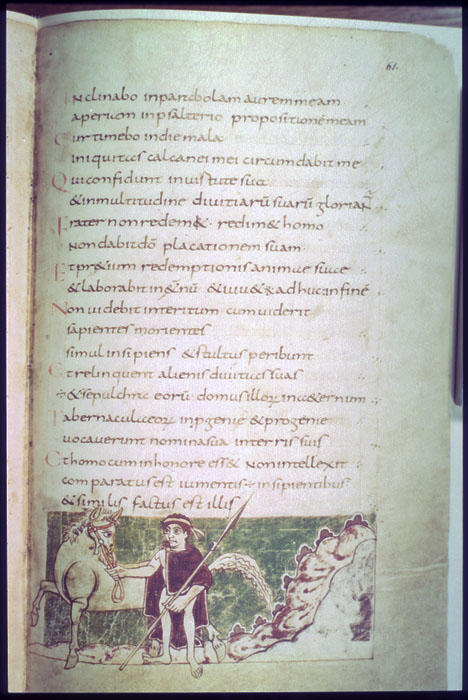 61.
INclinabo inparabolam auremmeam
aperiam inpsalterio propositionēmeam
Cur timebo indie mala
iniquitas calcanei mei circumdabit me
Qui confidunt inuirtute sua
&inmultitudine diuitiarū suarū glorianr̃
Frater nonredem& redim& homo
Nondabitdō placationem suam
Etpr&ium redemptionis animae suae
&laborabit in&nū &uiu& adhucinfinē
Non uidebit interitum cum uiderit
sapientes morientes
simul insipiens &stultus peribunt
Etrelinquent alienis diuitias suas
÷&sepulchra eorū domus illorū ina&ernum
Tabernacula eorū inpgenie &progenie
uocauerunt nomina sua interris suis
Ethomo cum inhonore ess& Nonintellexit
comparatus est iumentis÷insipientibus:
&similis factus est illis